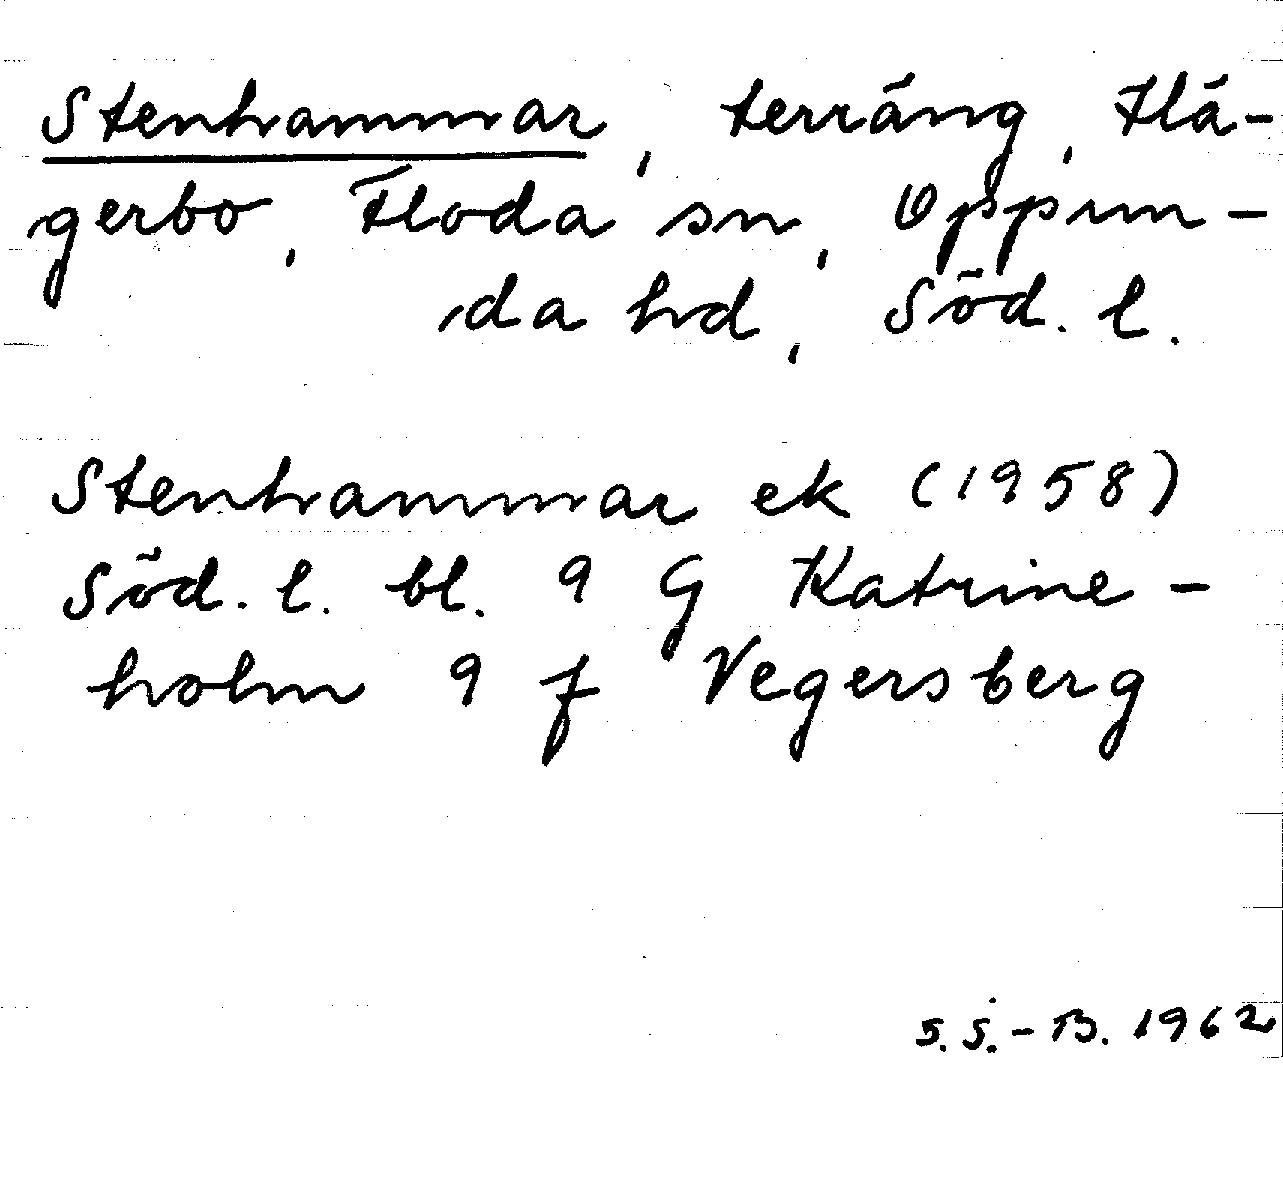 Stenhammar, terräng, Hä-
gerbo, Floda sn, Oppun-
da hd, Söd. l.
Stenhammar ek (1958)
Söd. l. bl. 9 G Katrine-
holm 9 f Vegersberg
S. S.-B. 1962